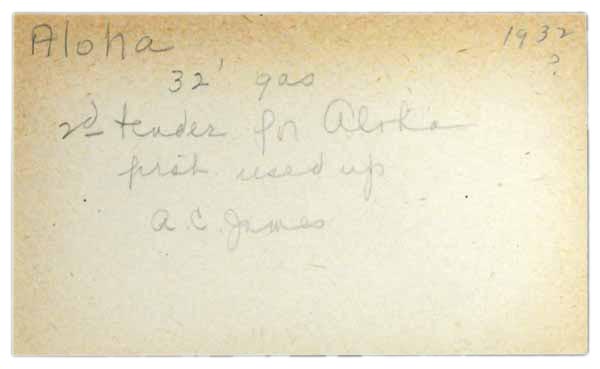 Aloha
1932
?
32' gas
2d tender for Aloha
first used up
A. C. James